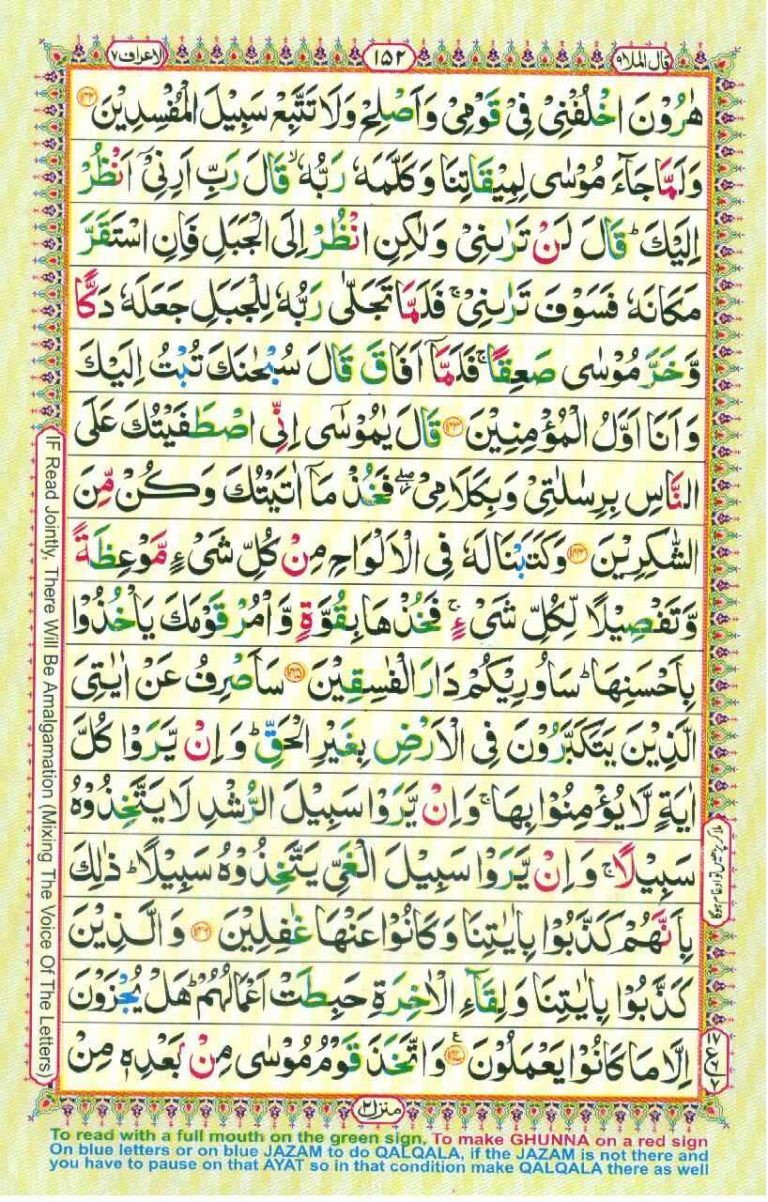 قال الملا۹
۱۵۲
الاعراف۷
هٰرُوْنَ اخْلُفْنِیْ فِیْ قَوْمِیْ وَاَصْلِحْ وَلَا تَتَّبِعْ سَبِیْلَ الْمُفْسِدِیْنَ ﴿۱۴۲﴾
وَلَمَّا جَآءَ مُوْسٰی لِمِیْقَاتِنَا وَكَلَّمَهٗ رَبُّهٗ ۙ قَالَ رَبِّ اَرِنِیْۤ اَنْظُرْ
اِلَیْكَ ؕ قَالَ لَنْ تَرٰىنِیْ وَلٰكِنِ انْظُرْ اِلَی الْجَبَلِ فَاِنِ اسْتَقَرَّ
مَكَانَهٗ فَسَوْفَ تَرٰىنِیْ ۚ فَلَمَّا تَجَلّٰی رَبُّهٗ لِلْجَبَلِ جَعَلَهٗ دَكًّا
وَّخَرَّ مُوْسٰی صَعِقًا ۚ فَلَمَّاۤ اَفَاقَ قَالَ سُبْحٰنَكَ تُبْتُ اِلَیْكَ
وَاَنَا اَوَّلُ الْمُؤْمِنِیْنَ ﴿۱۴۳﴾ قَالَ یٰمُوْسٰۤی اِنِّی اصْطَفَیْتُكَ عَلَی
النَّاسِ بِرِسٰلٰتِیْ وَبِكَلَامِیْ ۖ فَخُذْ مَاۤ اٰتَیْتُكَ وَكُنْ مِّنَ
الشّٰكِرِیْنَ ﴿۱۴۴﴾ وَكَتَبْنَا لَهٗ فِی الْاَلْوَاحِ مِنْ كُلِّ شَیْءٍ مَّوْعِظَةً
وَّتَفْصِیْلًا لِّكُلِّ شَیْءٍ ۚ فَخُذْهَا بِقُوَّةٍ وَّاْمُرْ قَوْمَكَ یَاْخُذُوْا
بِاَحْسَنِهَا ؕ سَاُورِیْكُمْ دَارَ الْفٰسِقِیْنَ ﴿۱۴۵﴾ سَاَصْرِفُ عَنْ اٰیٰتِیَ
الَّذِیْنَ یَتَكَبَّرُوْنَ فِی الْاَرْضِ بِغَیْرِ الْحَقِّ ؕ وَاِنْ یَّرَوْا كُلَّ
اٰیَةٍ لَّا یُؤْمِنُوْا بِهَا ۚ وَاِنْ یَّرَوْا سَبِیْلَ الرُّشْدِ لَا یَتَّخِذُوْهُ
سَبِیْلًا ۚ وَاِنْ یَّرَوْا سَبِیْلَ الْغَیِّ یَتَّخِذُوْهُ سَبِیْلًا ؕ ذٰلِكَ
بِاَنَّهُمْ كَذَّبُوْا بِاٰیٰتِنَا وَكَانُوْا عَنْهَا غٰفِلِیْنَ ﴿۱۴۶﴾ وَالَّذِیْنَ
كَذَّبُوْا بِاٰیٰتِنَا وَلِقَآءِ الْاٰخِرَةِ حَبِطَتْ اَعْمَالُهُمْ ؕ هَلْ یُجْزَوْنَ
اِلَّا مَا كَانُوْا یَعْمَلُوْنَ ﴿۱۴۷﴾ ع وَاتَّخَذَ قَوْمُ مُوْسٰی مِنْۢ بَعْدِهٖ مِنْ
منزل۲
IF Read Jointly, There Will Be Amalgamation (Mixing The Voice Of The Letters)
To read with a full mouth on the green sign. To make GHUNNA on a red sign
On blue letters or on blue JAZAM to do QALQALA, if the JAZAM is not there and
you have to pause on that AYAT so in that condition make QALQALA there as well